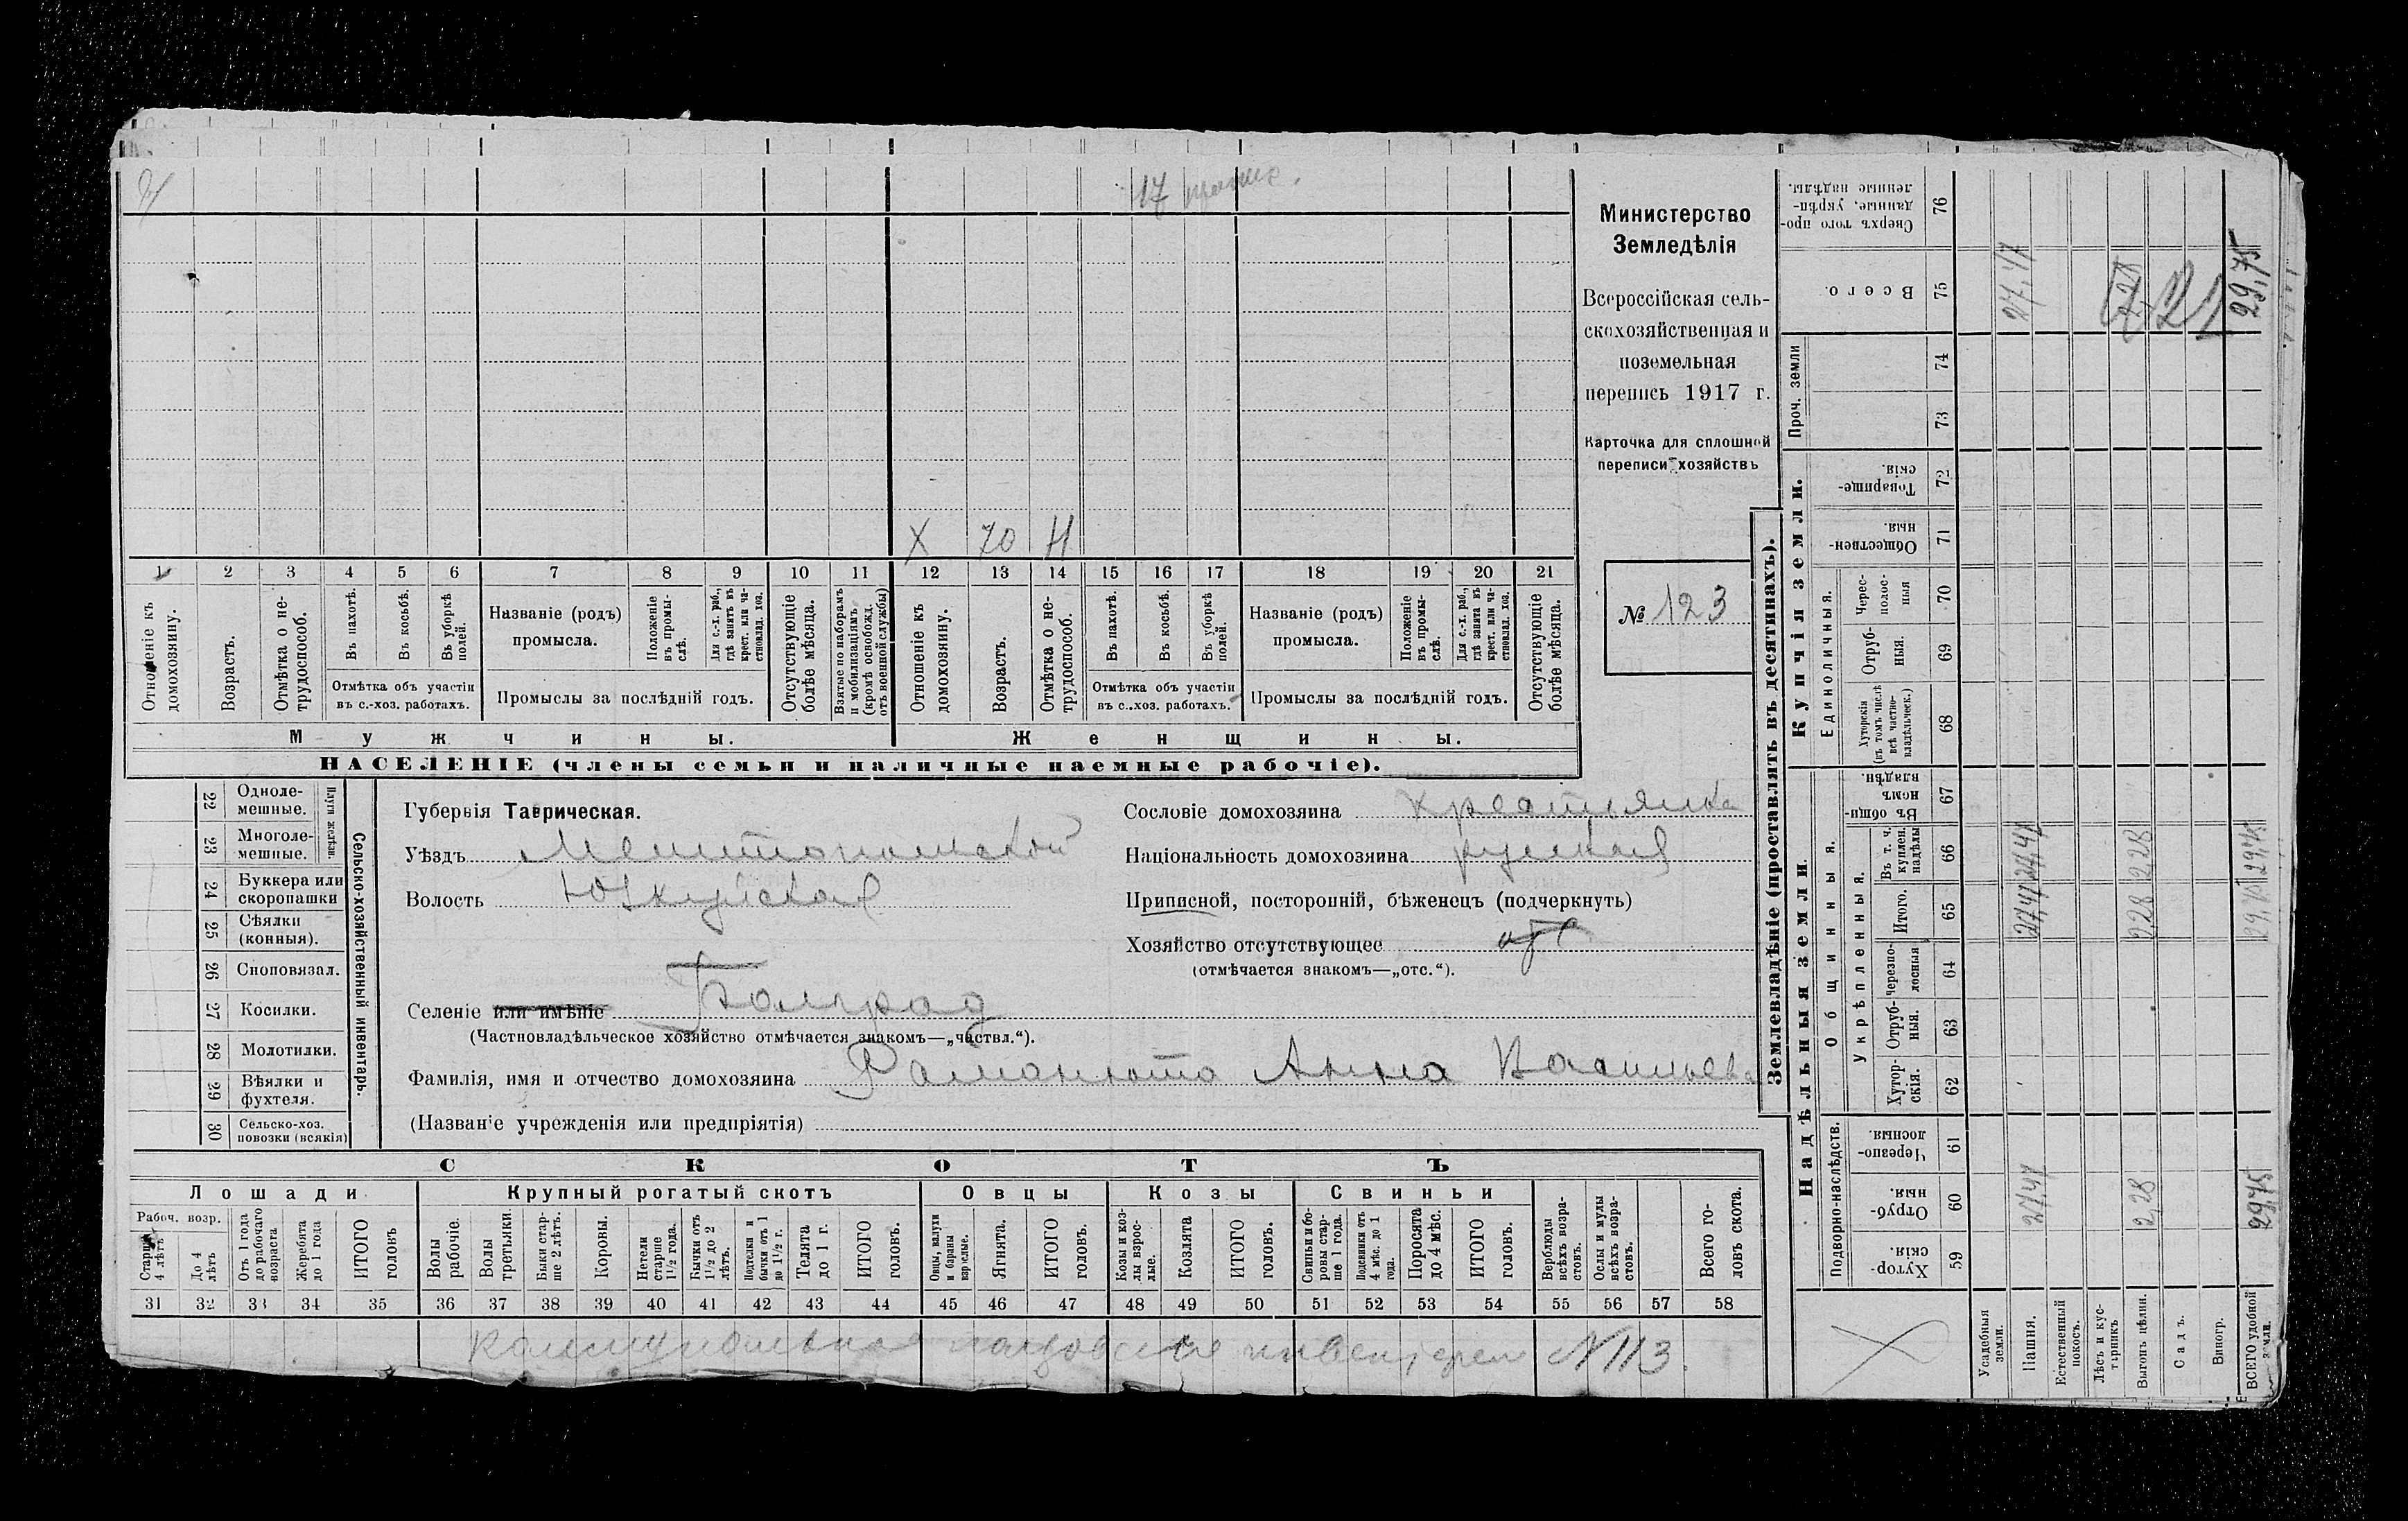 17
Министерство
Земледѣлія
Всероссійская сель-
скохозяйственная и
поземельная
перепись 1917 г.
Карточка для сплошной
переписи хозяйствъ
№ 123
X 70 Н
1 2 3 4 5 6 7 8 9 10 11 12 13 14 15 16 17 18 19 20 21
Отношеніе къ домохозяину.
Возрастъ.
Отмѣтка о не-трудоспособ.
Въ пахотѣ.
Въ косьбѣ.
Въ уборкѣ полей.
Отмѣтка объ участіи
въ с.-хоз. работахъ.
Названіе (родъ)
промысла.
Положеніе въ промы-слѣ.
Для с.-х. раб., гдѣ занятъ въ крест. или ча-стновлад. хоз.
Промыслы за послѣдній годъ.
Отсутствующіе болѣе мѣсяца.
Взятые по наборамъ и мобилизаціямъ (кромѣ освобожд. отъ военной службы)
Отношеніе къ домохозяину.
Возрастъ.
Отмѣтка о не-трудоспособ.
Въ пахотѣ.
Въ косьбѣ.
Въ уборкѣ полей.
Отмѣтка объ участіи
въ с.-хоз. работахъ.
Названіе (родъ)
промысла.
Положеніе въ промы-слѣ.
Для с.-х. раб., гдѣ занята въ крест. или ча-стновлад. хоз.
Промыслы за послѣдній годъ.
Отсутствующіе болѣе мѣсяца.
Мужчины. Женщины.
НАСЕЛЕНІЕ (члены семьи и наличные наемные рабочіе).
Сельско-хозяйственный инвентарь.
Плуги желѣзн.
22 Одноле-мешные.
23 Многоле-мешные.
24 Буккера или скоропашки
25 Сѣялки (конныя).
26 Сноповязал.
27 Косилки.
28 Молотилки.
29 Вѣялки и фухтеля.
30 Сельско-хоз. повозки (всякія)
Губернія Таврическая.
Уѣздъ Мелитопольский
Волость
Селеніе или имѣніе Болград
(Частновладѣльческое хозяйство отмѣчается знакомъ—„частвл.“).
Фамилія, имя и отчество домохозяина Анна Васильева
(Названіе учрежденія или предпріятія)
Сословіе домохозяина крестьянка
Національность домохозяина русская
Приписной, посторонній, бѣженецъ (подчеркнуть)
Хозяйство отсутствующее
(отмѣчается знакомъ—„отс.“).
СКОТЪ
Лошади Крупный рогатый скотъ Овцы Козы Свиньи
Рабоч. возр.
Старше 4 лѣтъ
До 4 лѣтъ
Отъ 1 года до рабочаго возраста
Жеребята до 1 года
ИТОГО головъ
Волы рабочіе.
Волы третьяки.
Быки стар-ше 2 лѣтъ.
Коровы.
Нетели старше 1 1/2 года.
Бычки отъ 1 1/2 до 2 лѣтъ.
Подтелки и бычки отъ 1 до 1 1/2 г.
Телята до 1 г.
ИТОГО головъ.
Овцы, валухи и бараны взрослые.
Ягнята.
ИТОГО головъ.
Козы и коз-лы взрос-лые.
Козлята
ИТОГО головъ.
Свиньи и бо-ровы стар-ше 1 года.
Подсвинки отъ 4 мѣс. до 1 года.
Поросята до 4 мѣс.
ИТОГО головъ.
Верблюды всѣхъ возра-стовъ.
Ослы и мулы всѣхъ возра-стовъ.
Всего го-ловъ скота.
31 32 33 34 35 36 37 38 39 40 41 42 43 44 45 46 47 48 49 50 51 52 53 54 55 56 57 58
N 113.
Землевладѣніе (проставлять въ десятинахъ).
Надѣльныя земли
Купчія земли.
Проч. земли
Подворно-наслѣдств.
Общинныя.
Укрѣпленныя.
Единоличныя.
Хутор-скія. 59
Отруб-ныя. 60
Черезпо-лосныя. 61
Хутор-скія. 62
Отруб-ныя. 63
Черезпо-лосныя 64
Итого. 65
Въ т. ч. куплен. надѣлы 66
Въ общин-номъ владѣн. 67
Хуторскія (въ томъ числѣ всѣ частно-владѣльческ.) 68
Отруб-ныя. 69
Черес-полос-ныя 70
Обществен-ныя. 71
Товарище-скія. 72
73
74
Всего. 75
Сверхъ того про-данные, укрѣп-ленные надѣлы. 76
Усадебныя земли.
Пашня. 27,47 27,47 27,47 27,47
Естественный покосъ.
Лѣсъ и кус-тарникъ
Выгонъ цѣлин. 2,28 2,28 2,28
Садъ.
Виногр.
ВСЕГО удобной земли. 29,75 29,75 29,75 29,75